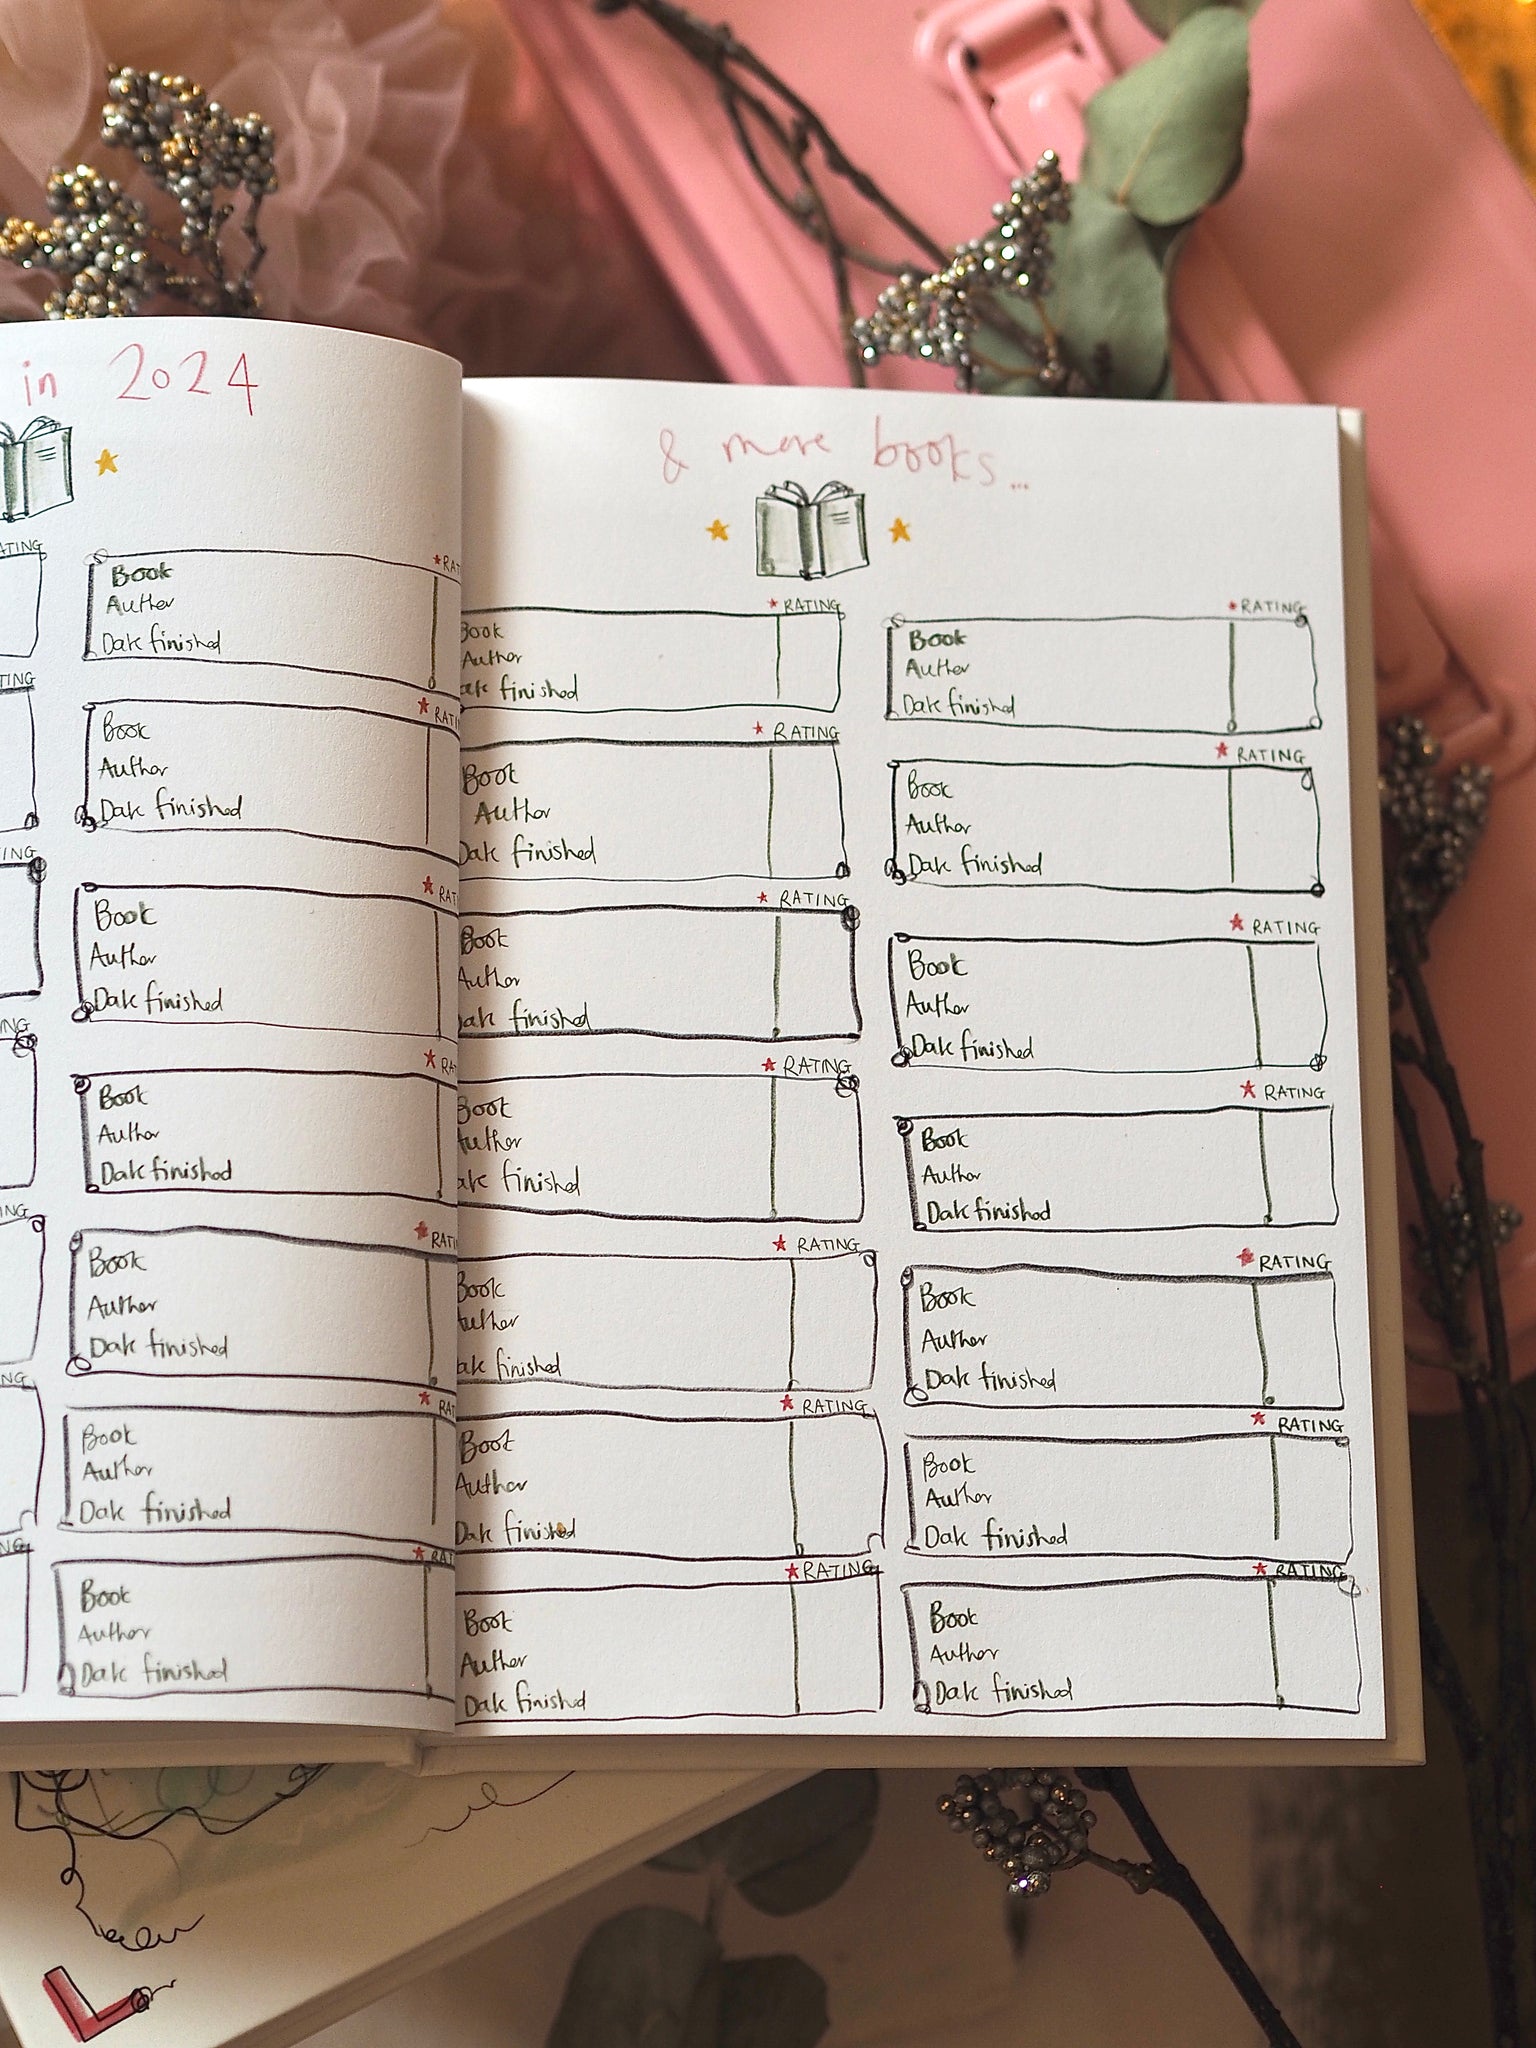 in 2024
ATING
TING
ING
ING
ING
NG
NG
RAT
Book
Author
Date finished
RATI
Book
Author
Date finished
RAT
Book
Author
Date finished
RAT
Book
Author
Date finished
RATI
Book
Author
Date finished
RAT
Book
Author
Date finished
RAT
Book
Author
Date finished
& more books...
RATING
Book
Author
ate finished
RATING
Book
Author
Date finished
RATING
Book
Author
ate finished
RATING
Book
Author
ate finished
RATING
Book
Author
ate finished
RATING
Book
Author
Date finished
RATING
Book
Author
Date finished
RATING
Book
Author
Date finished
RATING
Book
Author
Date finished
RATING
Book
Author
Date finished
RATING
Book
Author
Date finished
RATING
Book
Author
Date finished
RATING
Book
Author
Date finished
RATING
Book
Author
Date finished